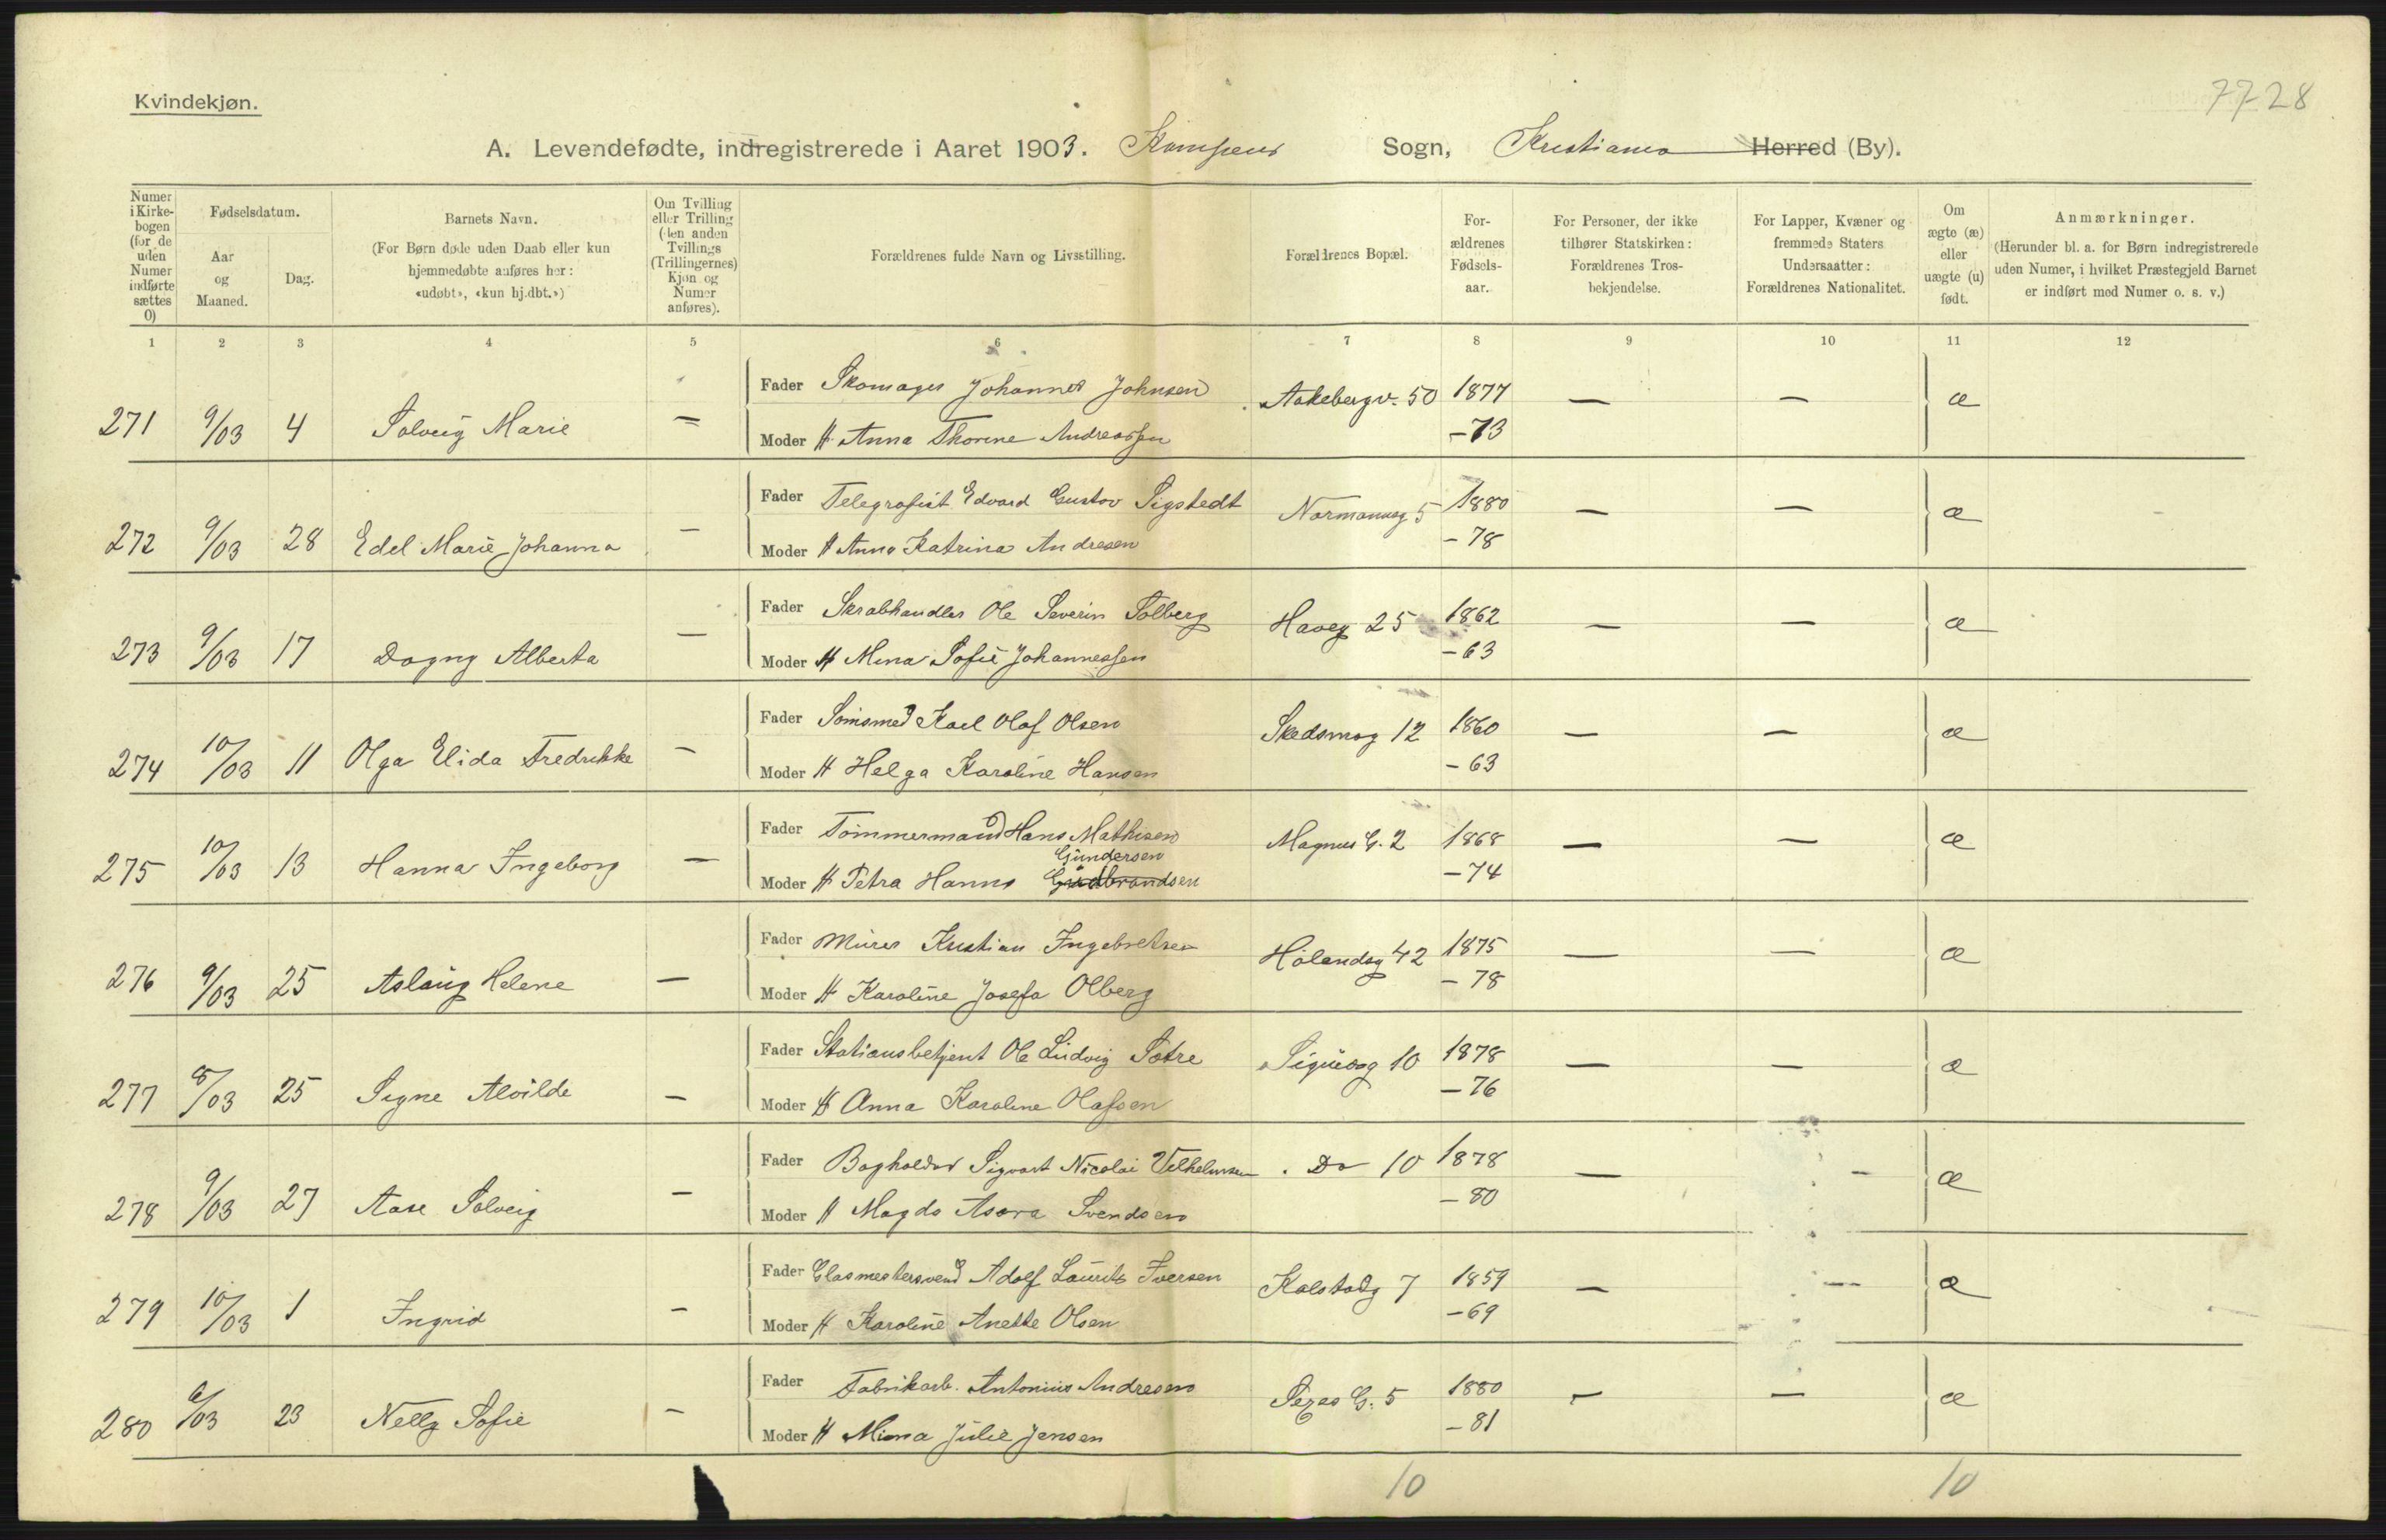 Kvindekjøn.
7728
A. Levendefødte, indregistrerede i Aaret 1903. Kampens Sogn, Kristiania Herred (By).
Numer i Kirke-bogen (for de uden Numer indførte sættes 0)
Fødselsdatum.
Aar og Maaned.
Dag.
Barnets Navn.
(For Børn døde uden Daab eller kun hjemmedøbte anføres her: «udøbt», «kun hj.dbt.»)
Om Tvilling eller Trilling (den anden Tvillings (Trillingernes) Kjøn og Numer anføres).
Forældrenes fulde Navn og Livsstilling.
Forældrenes Bopæl.
For-ældrenes Fødsels-aar.
For Personer, der ikke tilhører Statskirken: Forældrenes Tros-bekjendelse.
For Lapper, Kvæner og fremmede Staters Undersaatter: Forældrenes Nationalitet.
Om ægte (æ) eller uægte (u) født.
Anmærkninger.
(Herunder bl. a. for Børn indregistrerede uden Numer, i hvilket Præstegjeld Barnet er indført med Numer o. s. v.)
1 2 3 4 5 6 7 8 9 10 11 12
Fader Skomager Johannes Johnsen Aakebergv. 50 1877 — — æ
271 9/03 4 Solveig Marie — Moder H Anna Thorine Andreassen -73
Fader Telegrafist Edvard Gustav Sigstedt Normannsg 5 1880 — — æ
272 9/03 28 Edel Marie Johanna — Moder H Anna Katrina Andresen -78
Fader Skrabhandler Ole Severin Solberg Haveg 25 1862 — — æ
273 9/03 17 Dagny Alberta — Moder H Mina Sofie Johannessen -63
Fader Somsmed Karl Olaf Olsen Skedsmog 12 1860 — — æ
274 10/03 11 Olga Elida Fredrikke — Moder H Helga Karoline Hansen -63
Fader Tømmermand Hans Mathisen Magnus G. 2 1868 — — æ
Gundersen
275 10/03 13 Hanna Ingeborg — Moder H Petra Hanna Gudbrandsen -74
Fader Murer Kristian Ingebretsen Hølandsg 42 1875 — — æ
276 9/03 25 Aslaug Helene — Moder H Karoline Josefa Olberg -78
Fader Stationsbetjent Ole Ludvig Sætre Sigurdsg 10 1878 — — æ
277 8/03 25 Signe Alvilde — Moder H Anna Karoline Olafsen -76
Fader Bogholder Sigvart Nicolai Vilhelmsen Do 10 1878 — — æ
278 9/03 27 Aase Solveig — Moder H Magda Asora Svendsen -80
Fader Glasmestersvend Adolf Laurits Iversen Kalstadg 7 1859 — — æ
279 10/03 1 Ingrid — Moder H Karoline Anette Olsen -69
Fader Fabrikarb. Antonius Andresen G. 5 1880 — — æ
280 6/03 23 Nelly Sofie — Moder H Mina Julie Jensen -81
10 10